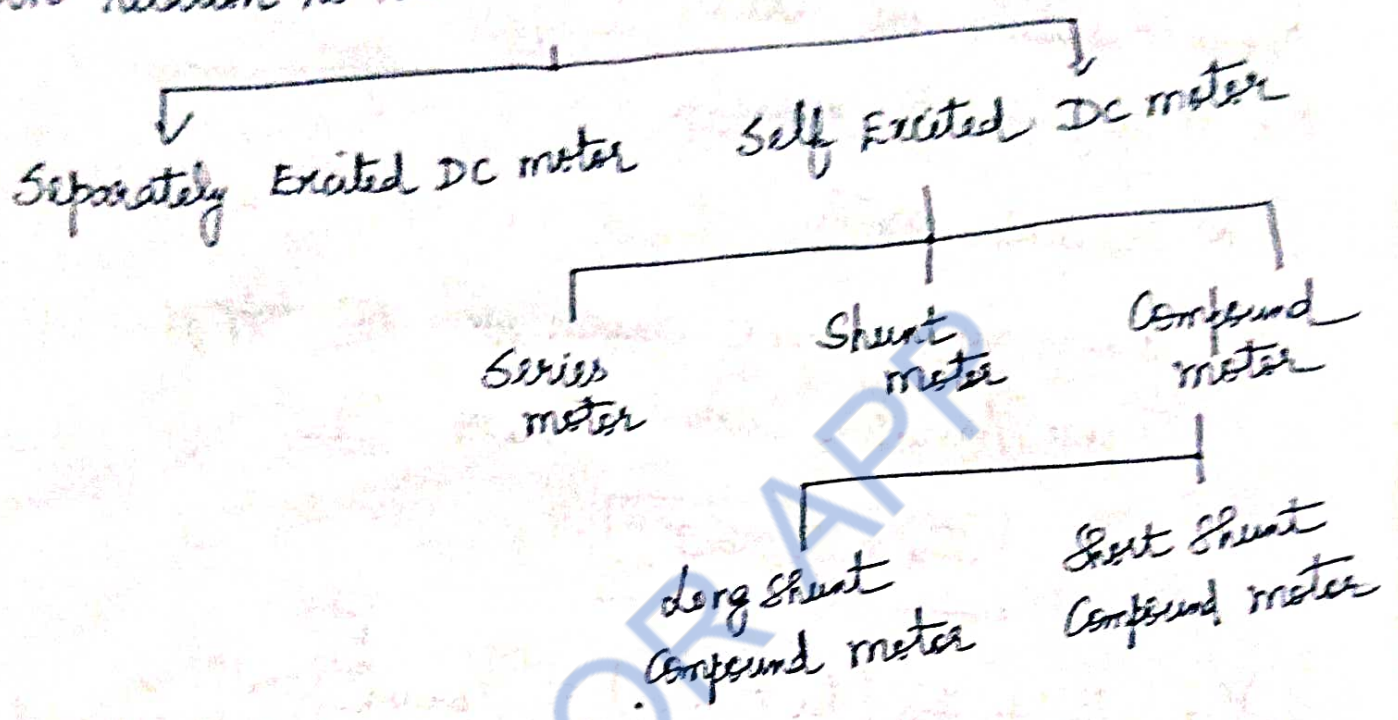 Separately Excited DC motor
Self Excited DC motor
Series
motor
Shunt
motor
Compound
motor
Long Shunt
Compound motor
Short Shunt
Compound motor
OR APP